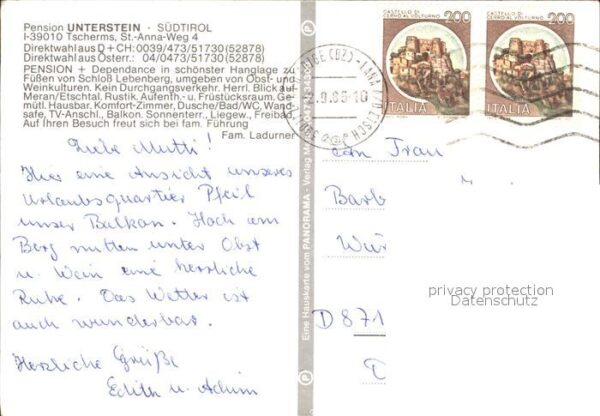 Pension UNTERSTEIN · SÜDTIROL
I-39010 Tscherms, St.-Anna-Weg 4
Direktwahl aus D + CH: 0039/473/51730 (52878)
Direktwahl aus Österr.: 04/0473/51730 (52878)
PENSION + Dependance in schönster Hanglage zu
Füßen von Schloß Lebenberg, umgeben von Obst- und
Weinkulturen. Kein Durchgangsverkehr. Herrl. Blick auf
Meran/Etschtal. Rustik. Aufenth.- u. Frühstücksraum. Ge-
mütl. Hausbar. Komfort-Zimmer, Dusche/Bad/WC, Wand-
safe, TV-Anschl., Balkon. Sonnenterr., Liegew., Freibad.
Auf Ihren Besuch freut sich bei fam. Führung
Fam. Ladurner
Liebe Mutti!
Hier eine Ansicht unseres
Urlaubsquartier Pfeil
unser Balkon. Hoch am
Berg mitten unter Obst
u. Wein eine herrliche
Ruhe. Das Wetter ist
auch wunderbar.
Herzliche Grüße
Edith u. Achim
Eine Hauskarte vom PANORAMA - Verlag
CASTELLO DI
CERRO AL VOLTURNO
200
ITALIA
CASTELLO DI
CERRO AL VOLTURNO
200
ITALIA
Frau
Barb
Wür
D 871
privacy protection
Datenschutz